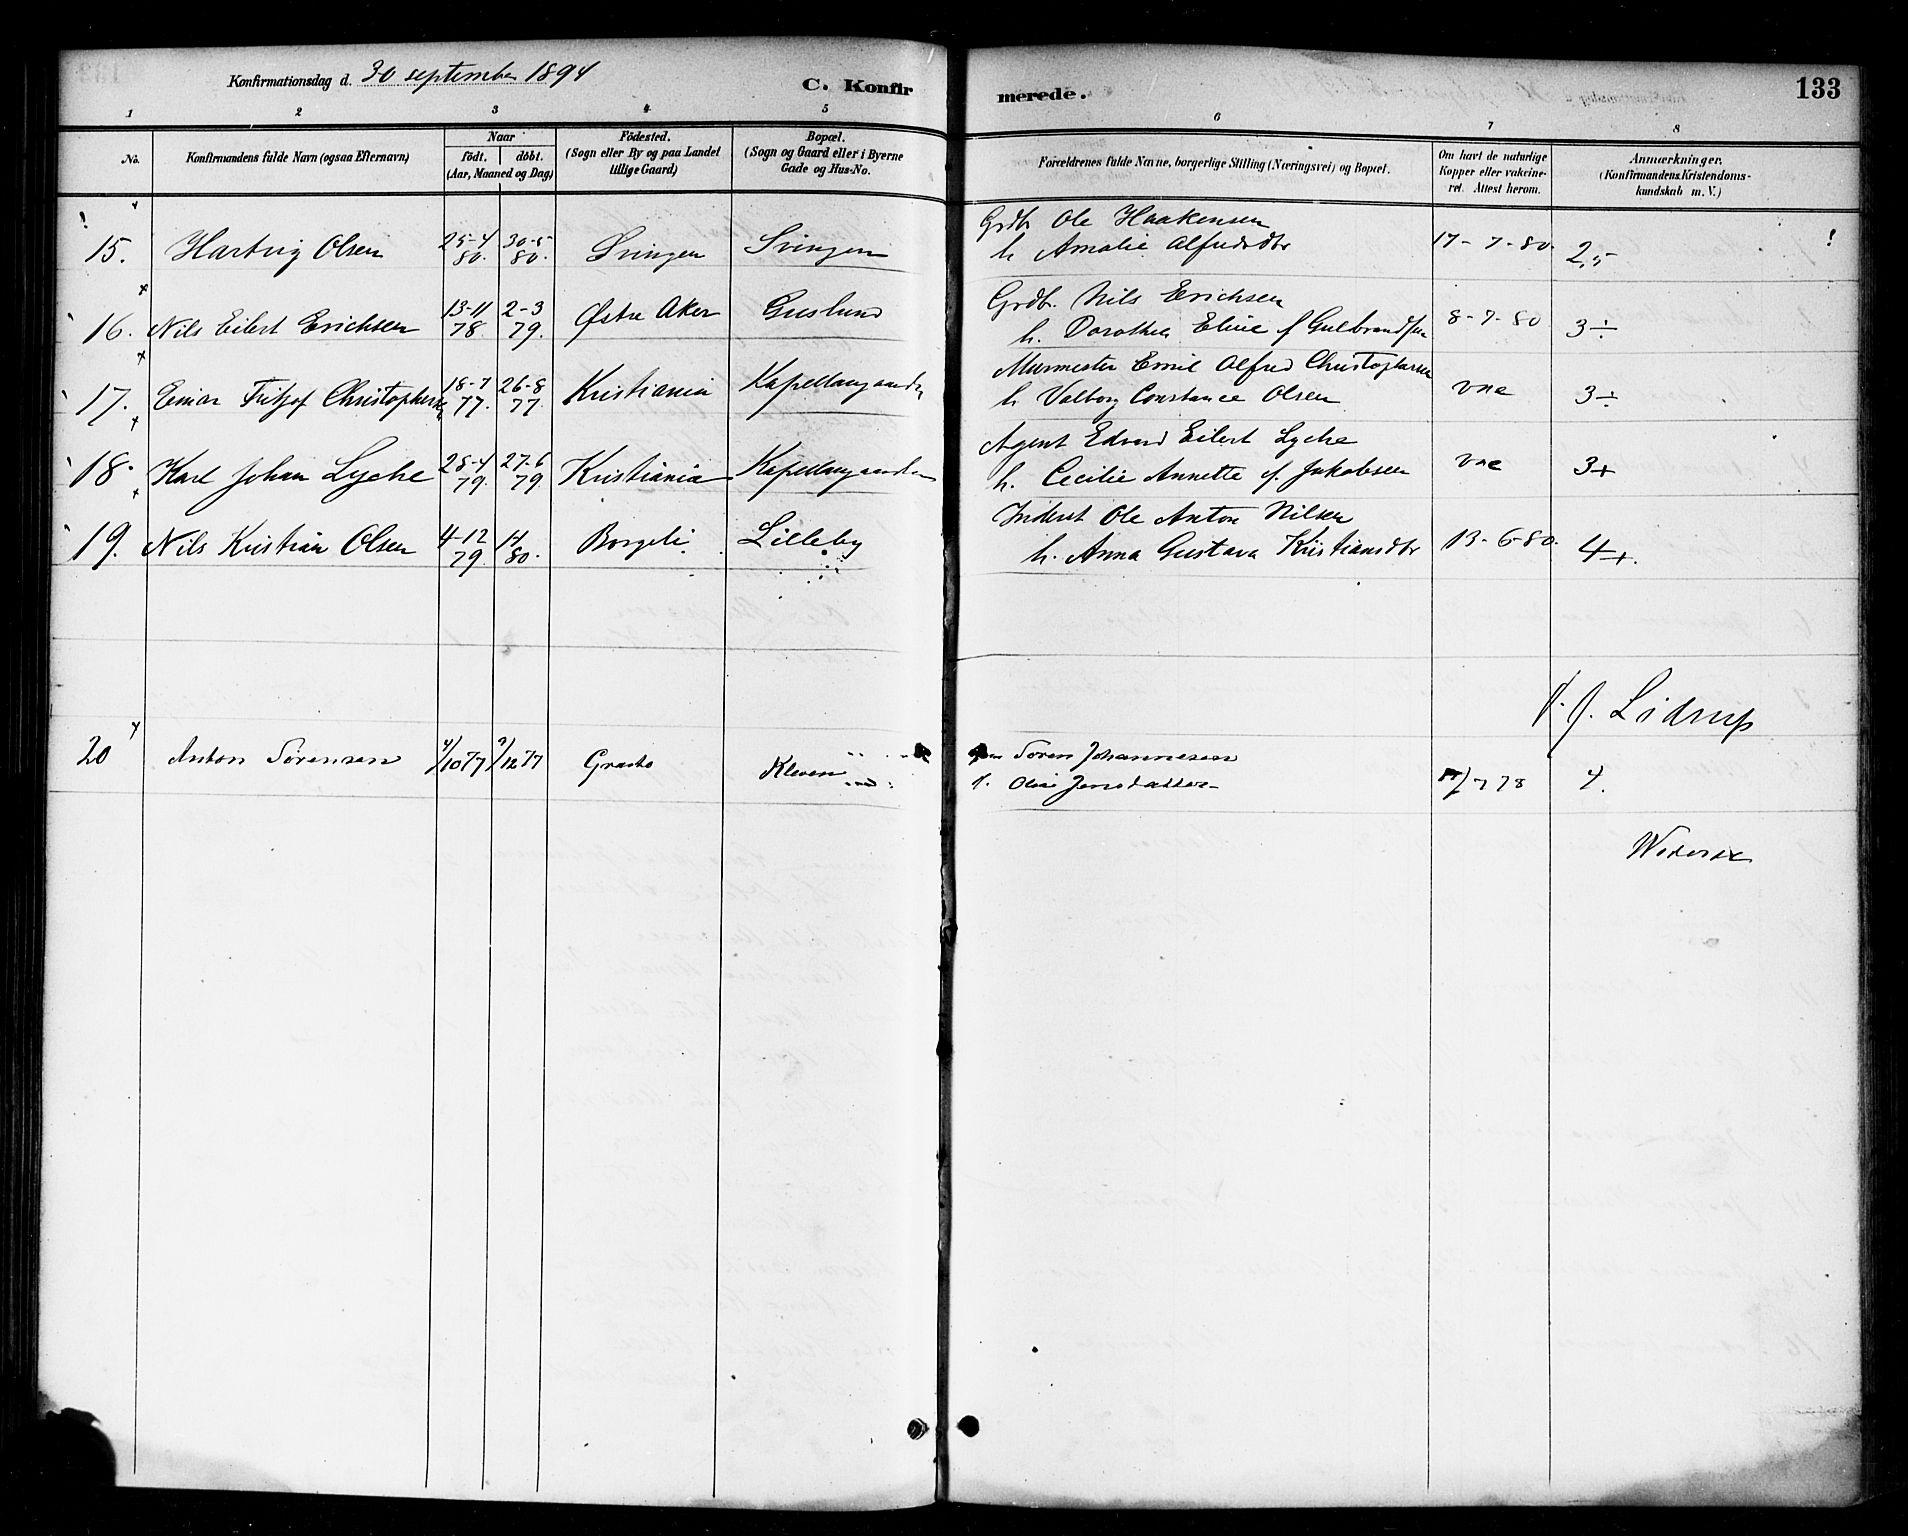 Konfirmationsdag d. 30 september 1894
C. Konfirmerede.
133
1 2 3 4 5 6 7 8
No. Konfirmandens fulde Navn (ogsaa Efternavn) Naar födt. döbt. (Aar, Maaned og Dag) Födested. (Sogn eller By og paa Landet tillige Gaard) Bopæl. (Sogn og Gaard eller i Byerne Gade og Hus-No. Forældrenes fulde Navne, borgerlige Stilling (Næringsvei) og Bopæl. Om havt de naturlige Kopper eller vakcineret. Attest herom. Anmærkninger. (Konfirmandens Kristendomskundskab m. V.)
15. Hartvig Olsen 25-4 80. 30-5 80. Svingen Svingen Grdbr Ole Haakensen 17-7-80. 2,5 !
h Amalie Alfredsdtr
16. Nils Eilert Erichsen 13-11 78. 2-3 79. Østre Aker Guslund Grdb. Nils Erichsen 8-7-80 3÷
h. Dorothea Eline f Gulbrandsen
17. Einar Fritjof Christophersen 18-7 77. 26-8 77 Kristiania Kapellangaarden Murmester Emil Alfred Christophersen vac 3÷
h. Valborg Constance Olsen
18. Karl Johan Lyche 28-4 79. 27-6 79 Kristiania Kapellangaarden Agent Edvard Eilert Lyche vac 3+
h. Cecilie Annette f. Jakobsen
19. Nils Kristian Olsen 4-12 79. 1/4 80. Borgeli Lilleby Inderst Ole Anton Nilsen 13-6-80. 4+.
h. Anna Gustava Kristiansdtr
J. Lidrup
20 Anton Sörensen 4/10 77 9/12 77 Kleven Sören Johannesen
Oline Jensdatter /7 78 4.